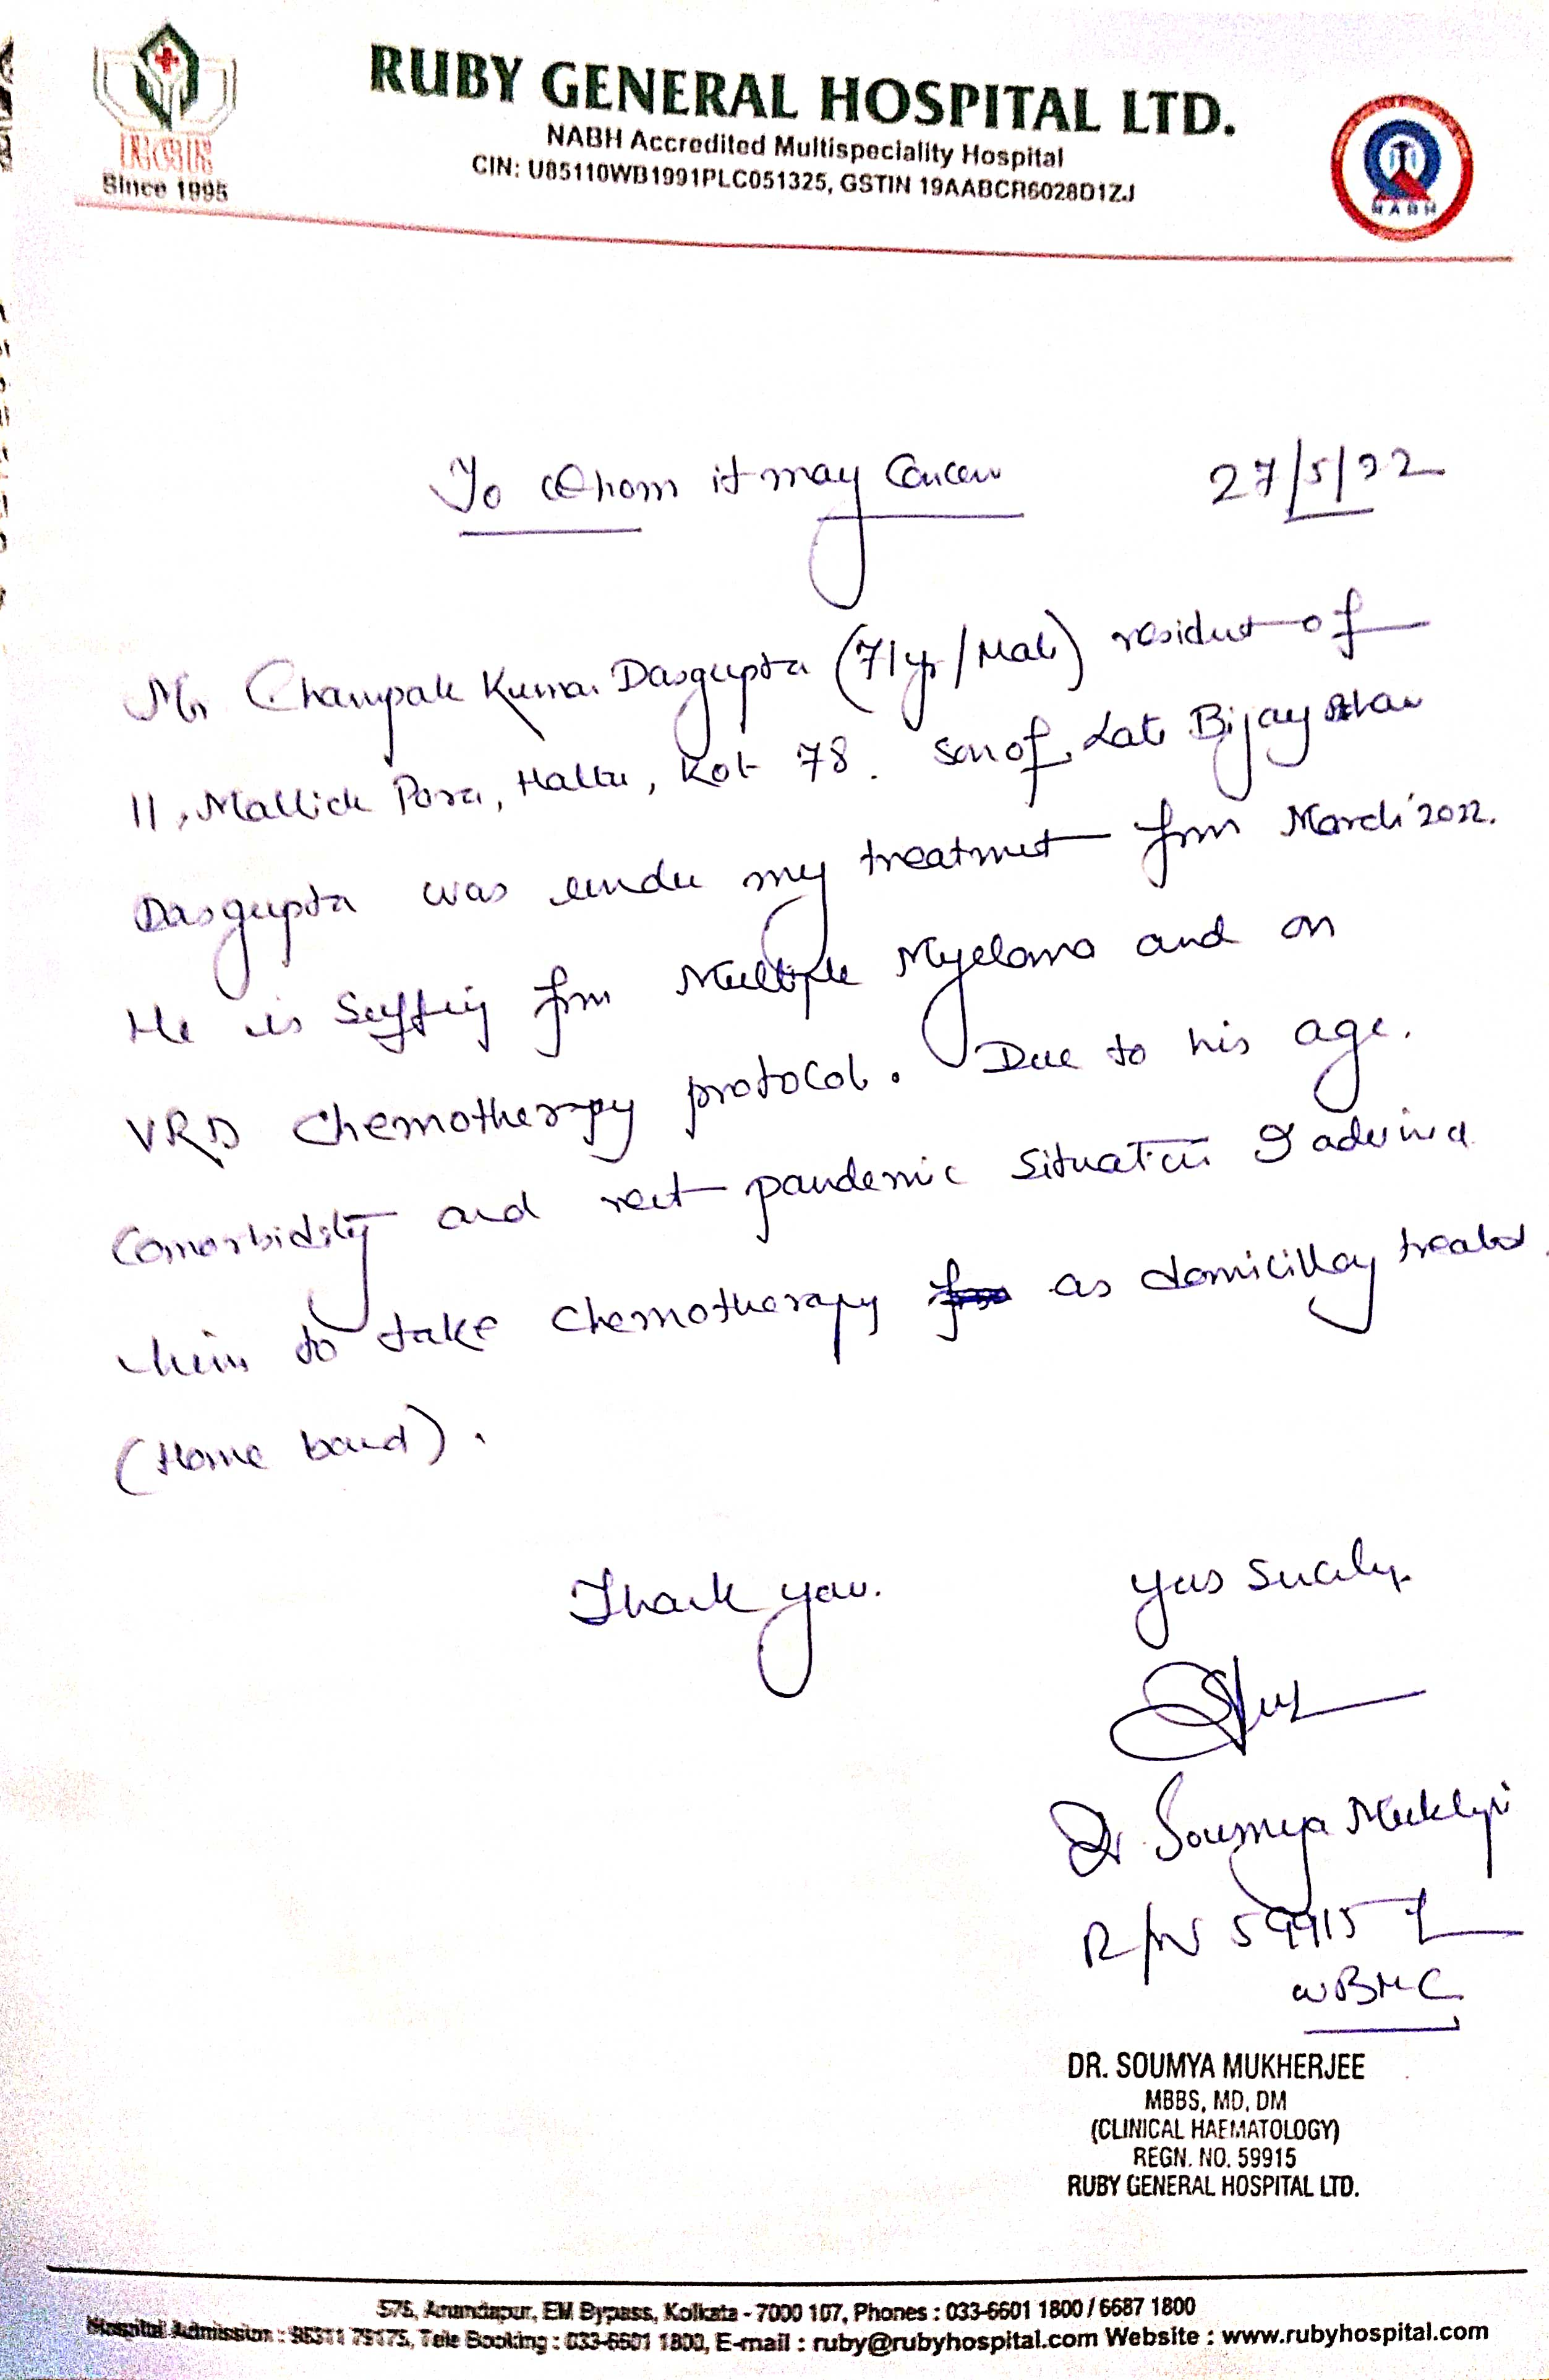 RUBY GENERAL HOSPITAL LTD.
NABH Accredited Multispeciality Hospital
CIN: U85110WB1991PLC051325, GSTIN 19AABCR6028D1ZJ
Since 1995
NABH
To Whom it may Concern 27/5/22
Mr Champak Kumar Dasgupta (71yr/Male) resident of
11, Mallick Para, Haltu, Kol- 78. Son of, Late Bijay
Dasgupta was under my treatment from March'2022.
He is Suffering from Multiple Myeloma and on
VRD Chemotherapy protocol. Due to his age,
Comorbidity and pandemic Situation I advised
him to take Chemotherapy as domicillay
(Home based).
Thank you. Yours Sincerely
Dr Soumya Mukherjee
R/N 59915
WBMC
DR. SOUMYA MUKHERJEE
MBBS, MD, DM
(CLINICAL HAEMATOLOGY)
REGN. NO. 59915
RUBY GENERAL HOSPITAL LTD.
576, Anandapur, EM Bypass, Kolkata - 7000 107, Phones : 033-6601 1800 / 6687 1800
Hospital Admission : Tele Booking : 033-6601 1800, E-mail : ruby@rubyhospital.com Website : www.rubyhospital.com